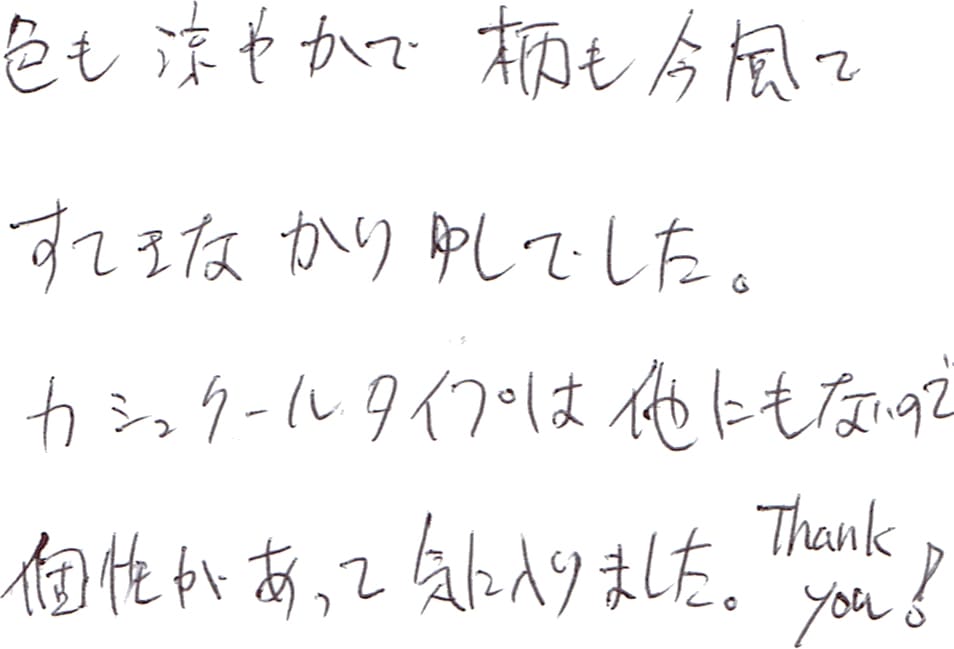 色も涼やかで 柄も今風で
すてきな かりゆしでした。
カシュクールタイプは他にもないので
個性があって気に入りました。Thank you!